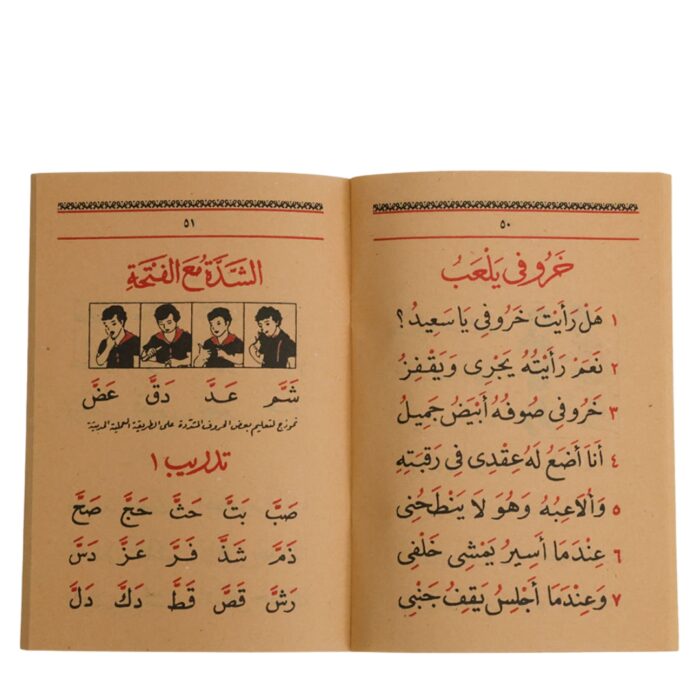 ٥٠
خَرُوفِى يَلْعَبُ
١ هَلْ رَأَيْتَ خَرُوفِى يَا سَعِيدُ؟
٢ نَعَمْ رَأَيْتُهُ يَجْرِى وَيَقْفِزُ
٣ خَرُوفِى صُوفُهُ أَبْيَضُ جَمِيلُ
٤ أَنَا أَضَعُ لَهُ عِقْدِى فِى رَقَبَتِهِ
٥ وَأُلَاعِبُهُ وَهُوَ لَا يَنْطَحُنِى
٦ عِنْدَمَا أَسِيرُ يَمْشِى خَلْفِى
٧ وَعِنْدَمَا أَجْلِسُ يَقِفُ جَنْبِى
٥١
الشَّدَّةُ مَعَ الفَتْحَةِ
شَمَّ عَدَّ دَقَّ عَضَّ
نموذج لتعليم بعض الحروف المشدّدة على الطريقة
تدريب ١
صَبَّ بَتَّ حَثَّ حَجَّ صَحَّ
ذَمَّ شَذَّ فَرَّ عَزَّ دَسَّ
رَشَّ قَصَّ قَطَّ دَكَّ دَلَّ